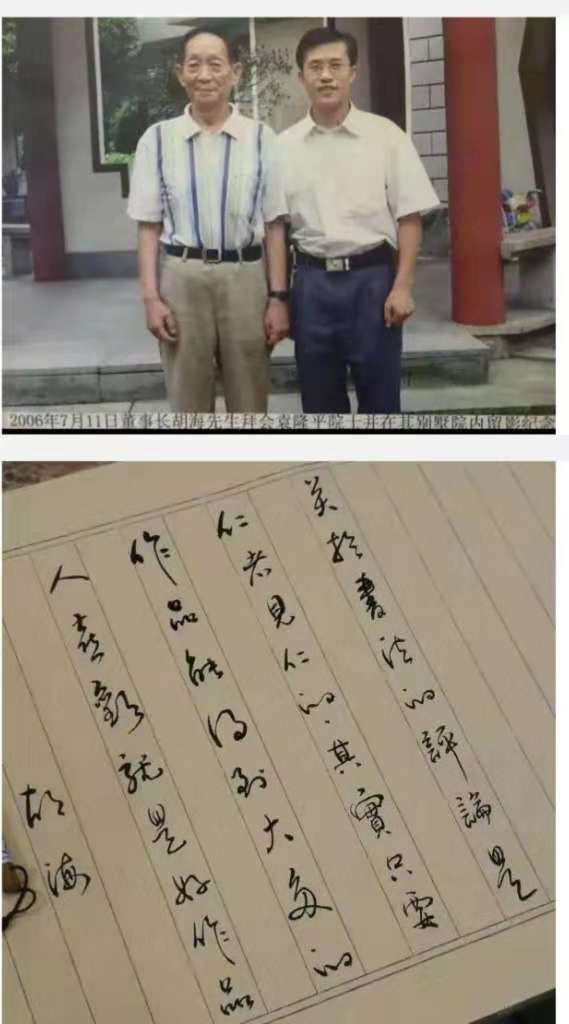 2006年7月11日董事长胡海先生拜会袁隆平院士并在其别墅院内留影纪念
关於書法的評論是
仁者見仁的，其實只要
作品能得到大多的
人喜歡就是好作品
胡海